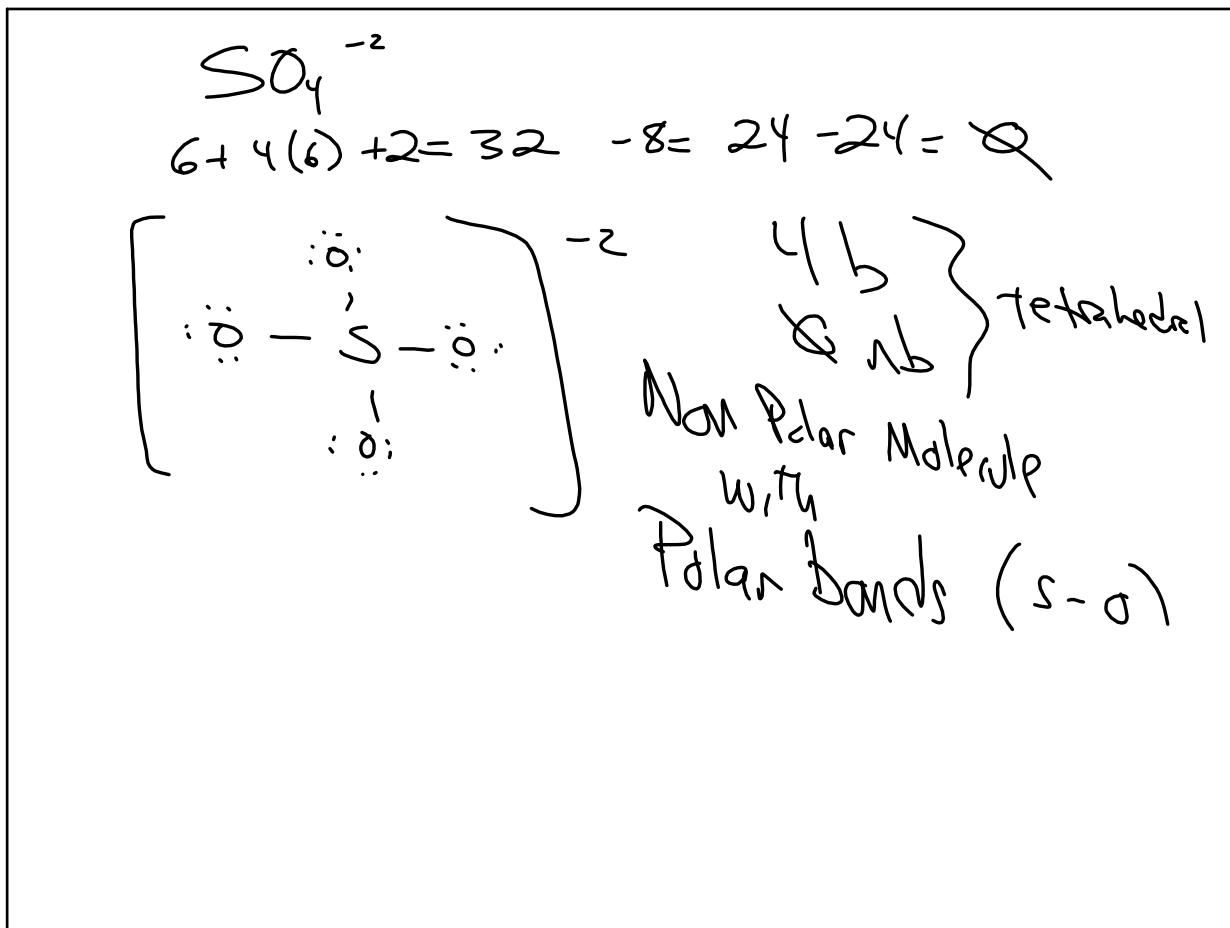 SO₄⁻²
6+ 4(6) +2= 32 -8= 24 -24= Ø
[ :Ö: ]⁻²
:Ö — S — Ö:
:O:
4 b
Ø nb } tetrahedral
Non Polar Molecule
with
Polar bonds (S-O)